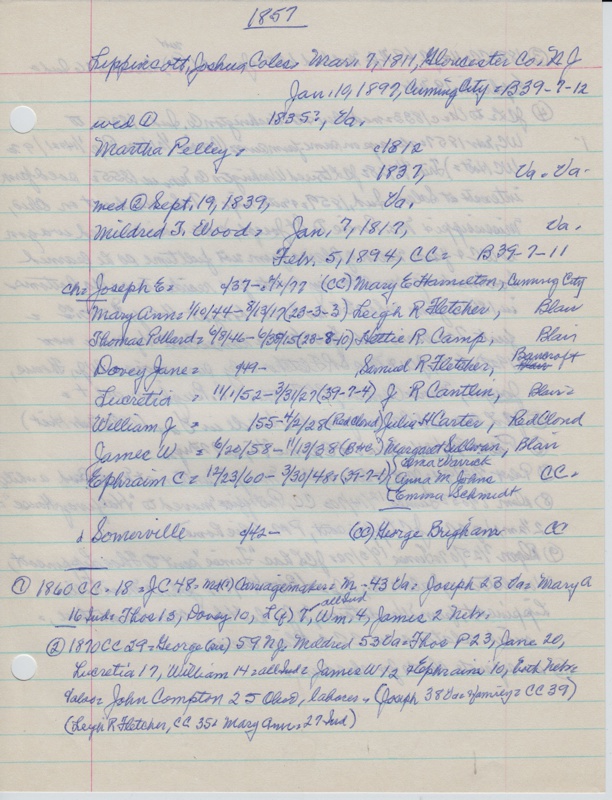 1857
Lippincott, Joshua Coles = Mar. 7, 1811, Gloucester Co., N J
Jan. 19, 1897, Cuming City = B39-7-12
wed ① 1835?, Va.
Martha Pelley = c1812
1837, Va. = Va.
med ② Sept. 19, 1839, Va.
Mildred T. Wood = Jan. 7, 1817, Va.
Febr. 5, 1894, CC = B39-7-11
ch = Joseph E = /37- /77 (CC) Mary E Hamilton, Cuming City
Mary Ann = 1/10/44-8/13/17 (23-3-3) Leigh R Fletcher, Blair
Thomas Pollard = 6/8/46-6/30/15 (28-8-10) Hettie R. Camp, Blair
Dovey Jane = /49- Samial R Fletcher, Bancroft
Lucretia = 11/1/52-3/31/27 (39-7-4) J. R Cantlin, Blair =
William J = /55-4/2/28 (Red Cloud) Julia H Carter, Red Cloud
James W = 6/20/58-11/13/38 Margaret Sullivan, Blair
Alma Warrick
Ephraim C = 12/23/60-3/30/48 = (39-7-1) Anna M. Johns CC =
Emma Schmidt
Somerville /42- (CC) George Brigham CC
① 1860 CC = 18 = J C 48 = Carriagemaker = M - 43 Va = Joseph 23 Va = Mary A
all Ind
16 Ind = Thos 13, Dovey 10, L 7, Wm. 4, James 2 Nebr.
② 1870 CC 39 = George 59 N J. Mildred 53 Va = Thos P 23, Jane 20,
Lucretia 17, William 14 = all Ind = James W 12 + Ephraim 10, both Nebr
+ also = John Compton 25 Ohio, laborer. (Joseph 38 Va + family = CC 39)
(Leigh R Fletcher, CC 35 = Mary Ann = 27 Ind)